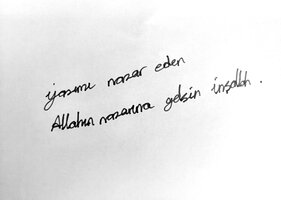 yazımı nazar eden
Allahın nazarına gelsin inşallah .